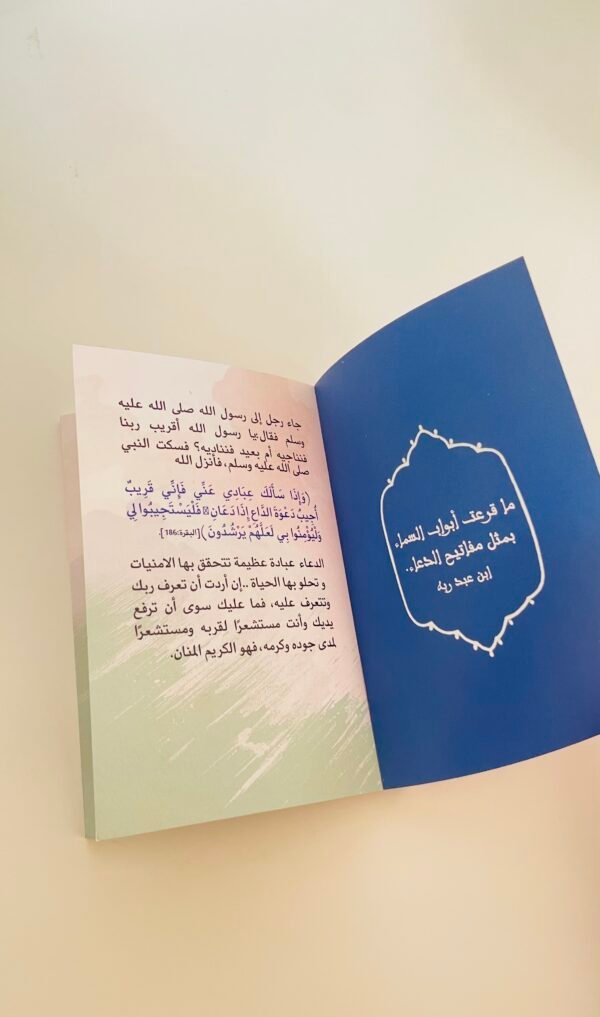 ما قرعت أبواب السماء
بمثل مفاتيح الدعاء.
ابن عبد ربه
جاء رجل إلى رسول الله صلى الله عليه
وسلم فقال:يا رسول الله أقريب ربنا
فنناجيه أم بعيد فنناديه؟ فسكت النبي
صلى الله عليه وسلم، فأنزل الله
(وَإِذَا سَأَلَكَ عِبَادِي عَنِّي فَإِنِّي قَرِيبٌ
أُجِيبُ دَعْوَةَ الدَّاعِ إِذَا دَعَانِ فَلْيَسْتَجِيبُوا لِي
وَلْيُؤْمِنُوا بِي لَعَلَّهُمْ يَرْشُدُونَ)[البقرة:186].
الدعاء عبادة عظيمة تتحقق بها الامنيات
و تحلو بها الحياة ..إن أردت أن تعرف ربك
وتتعرف عليه، فما عليك سوى أن ترفع
يديك وأنت مستشعرًا لقربه ومستشعرًا
لمدى جوده وكرمه، فهو الكريم المنان.